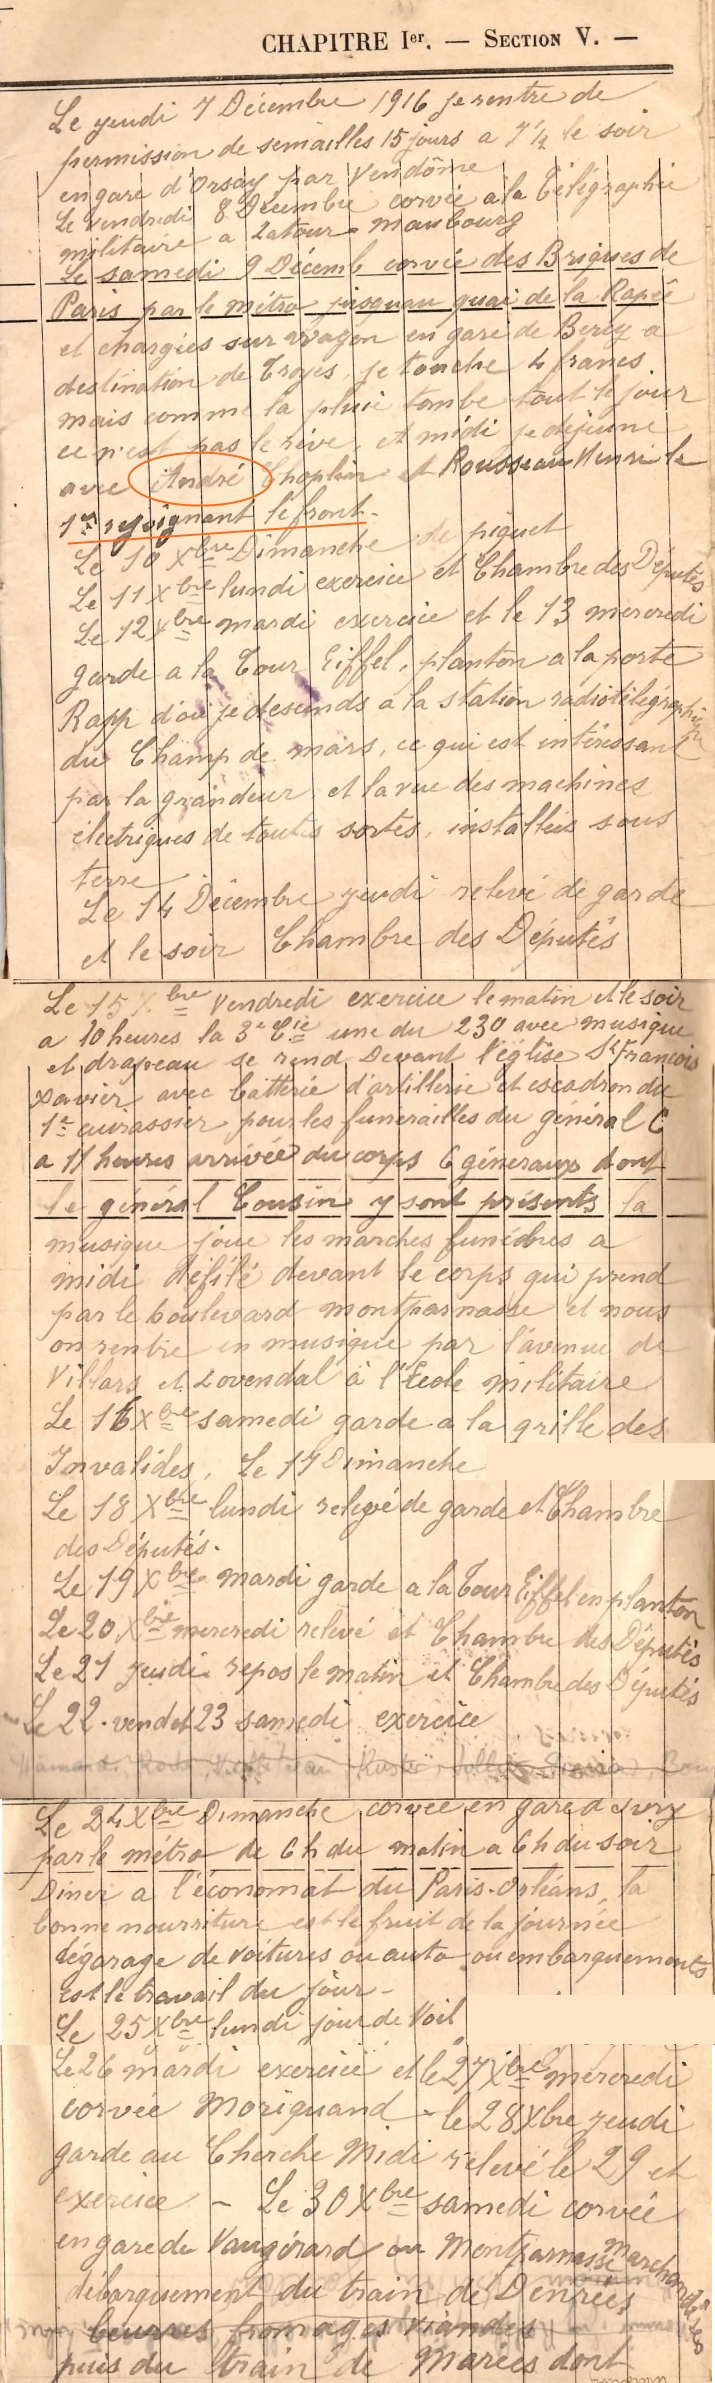 CHAPITRE Ier. — SECTION V. —
Le jeudi 7 Décembre 1916 je rentre de
permission de semailles 15 jours a 7 1/2 le soir
en gare d'Orsay par Vendôme
Le vendredi 8 Décembre corvée a la Télégraphie
militaire a Latour maubourg
Le samedi 9 Décemb corvée des Briques de
Paris par le métro jusquau quai de la Rapée
et chargées sur wagon en gare de Bercy a
destination de Troyes. je touche 4 francs
mais comme la pluie tombe tout le jour
ce n'est pas le rêve, et midi je déjeune
avec André Choplin et Rousseau Henri le
1er rejoignant le front.
Le 10 Xbre Dimanche de piquet
Le 11 Xbre lundi exercice et Chambre des Députés
Le 12 Xbre mardi exercice et le 13 mercredi
garde a la Tour Eiffel, planton a la porte
Rapp d'où je descends a la station radiotélégraphique
du Champ de mars, ce qui est intéressant
par la grandeur et la vue des machines
électriques de toutes sortes, installées sous
terre
Le 14 Décembre jeudi relevé de garde
et le soir Chambre des Députés
Le 15 Xbre Vendredi exercice le matin et le soir
a 10 heures la 3e Cie une du 230 avec musique
et drapeau se rend Devant l'église St François
Xavier avec batterie d'artillerie et escadron du
1er cuirassier pour les funérailles du général C
a 11 heures arrivée du corps 6 généraux dont
le général Cousin y sont présents la
musique joue les marches funèbres a
midi défilé devant le corps qui prend
par le boulevard montparnasse et nous
on rentre en musique par l'avenue de
Villars et Lovendal à l'Ecole militaire
Le 16 Xbre samedi garde a la grille des
Invalides. Le 17 Dimanche
Le 18 Xbre lundi relevé de garde et Chambre
des Députés.
Le 19 Xbre mardi garde a la Tour Eiffel en planton
Le 20 Xbre mercredi relevé et Chambre des Députés
Le 21 jeudi repos le matin et Chambre des Députés
Le 22 vend et 23 samedi exercice
Le 24 Xbre Dimanche corvée en gare d'Ivry
par le métro de 6h du matin a 6h du soir
Diner a l'économat du Paris-Orléans, la
bonne nourriture est le fruit de la journée
dégarage de voitures ou auto ou embarquements
est le travail du jour -
Le 25 Xbre lundi jour de Voil
Le 26 mardi exercice et le 27 Xbre mercredi
corvée Moriquand - le 28 Xbre jeudi
garde au Cherche Midi relevé le 29 et
exercice - Le 30 Xbre samedi corvée
en gare de Vaugirard ou Montparnasse Marchandises
débarquement du train de Denrées
beurres fromages viandes
puis du train de Marées dont